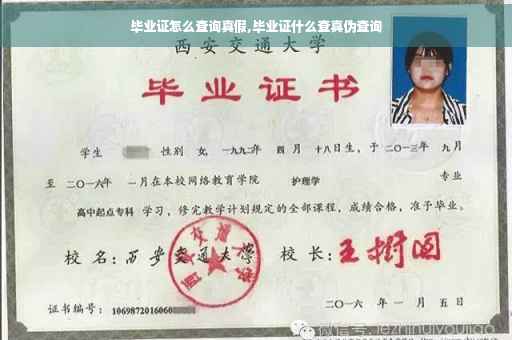 毕业证怎么查询真假,毕业证什么查真伪查询
西安交通大学
毕业证书
学生 性别 女, 一九九二年 四月 十八日生, 于二〇一三年 九月
至二〇一六年 一月在本校网络教育学院 护理学 专业
高中起点专科 学习, 修完教学计划规定的全部课程, 成绩合格, 准予毕业。
校名: 西安交通大学 校长: 王树国
证书编号: 1069872016060
二〇一六年一月五日
微信号: jezhinuiyoujiao